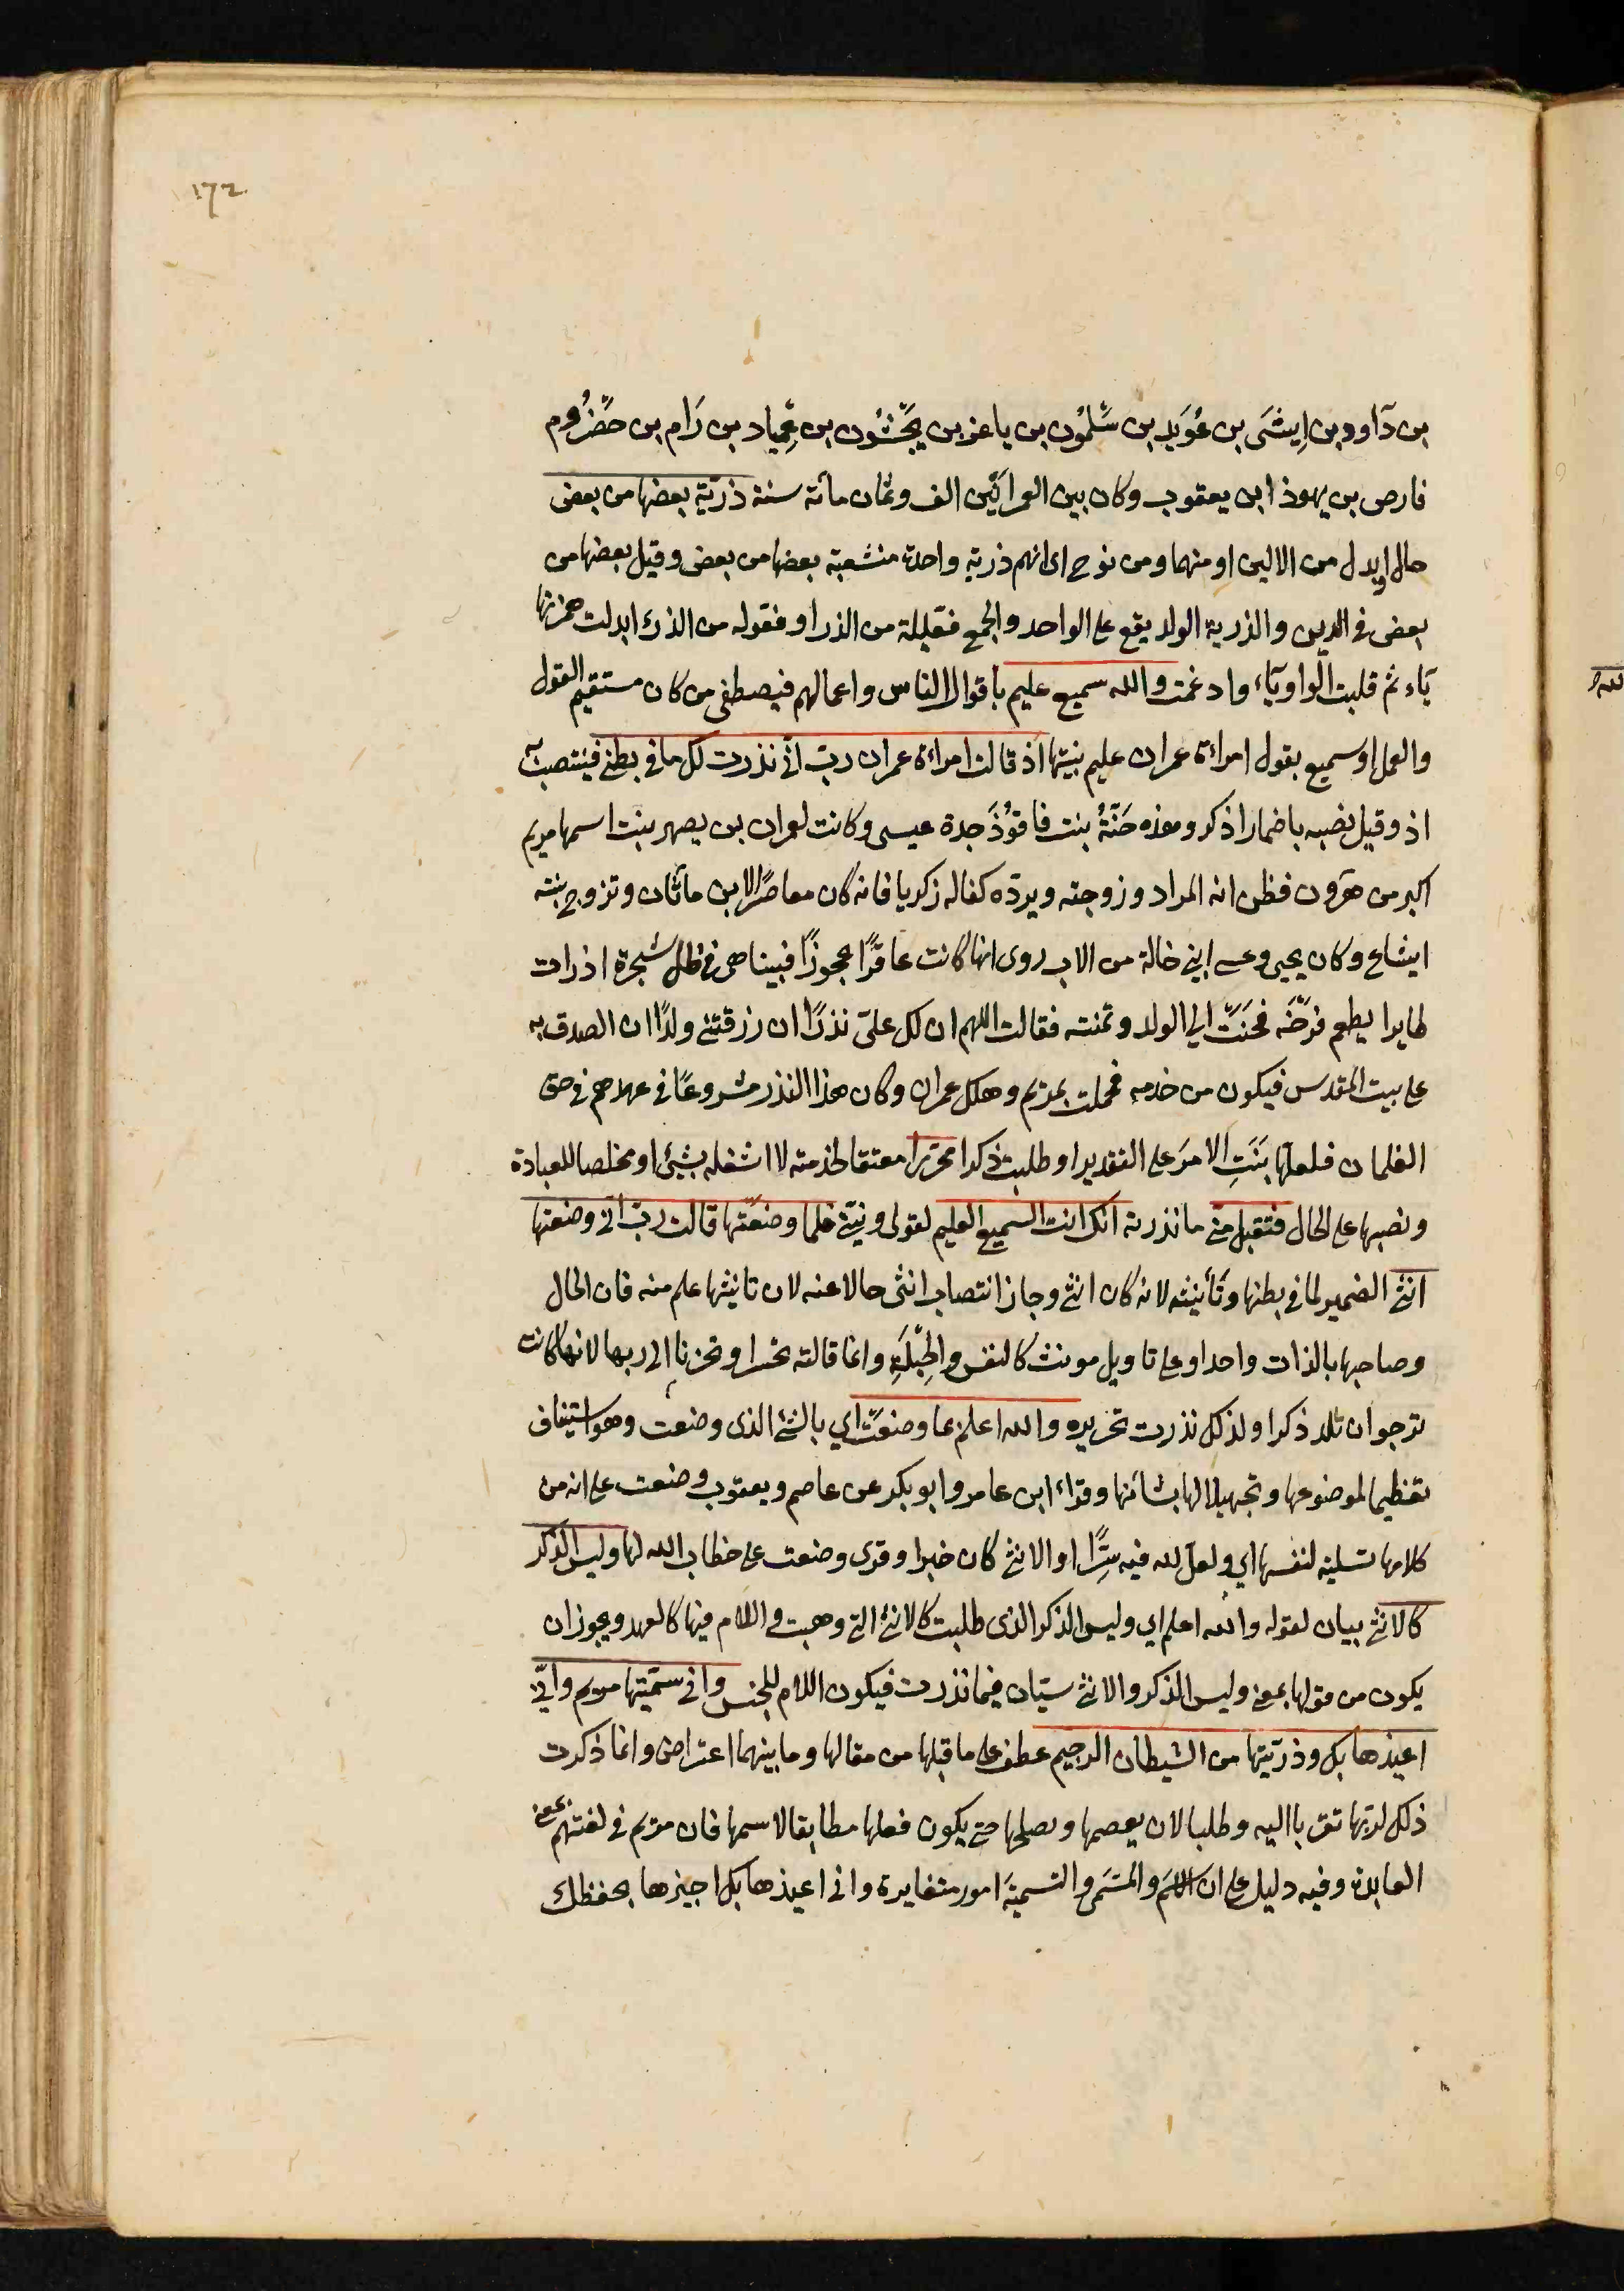 ١٧٢
بن دآوود بن اِيشَى بن عُوَيد بن سَّلمُون بن ياعز بن يَجَّشُون بن عِمّياد بن رَام بن حَضْرُوم
فارص بن يهوذا ابن يعقوب وكان بين العمرانَين الف وثمان مائة سنة ذرّية بعضها من بعض
حال او بدل من الالين او منهما ومن نوح اى انهم ذرية واحدة منشعبة بعضها من بعض وقيل بعضها من
بعض فى الدين والذرية الولد يقع على الواحد والجمع فعّليلة من الذر او فعّوله من الذرء ابدلت همزتها
يآء ثم قلبت الواو يآء وادغمت والله سميع عليم باقوال الناس واعمالهم فيصطفى من كان مستقيم القول
والعمل او سميع بقول امراءة عمران عليم بنيتها اذ قالت امراءة عمران ربّ انّى نذرت لك ما فى بطنى فينتصب به
اذ وقيل نصبه باضمار اذكر وهذه حَنَّةُ بنت فاقوُذَ جدة عيسى وكانت لعمران بن يصهر بنت اسمها مريم
اكبر من هرون فظن انه المراد وزوجته ويردّه كفالة زكريا فانه كان معاصرًا لابن ماثان وتزوج بنته
ايشاع وكان يحيى وعيسى ابنى خالة من الاب روى انها كانت عاقرًا عجوزًا فبينا هى فى ظل شجرة اذ رات
طايرا يطعم فرخَه فحَنَتَّ الى الولد وتمنته فقالت اللهم ان لك علىّ نذرًا ان رزقتنى ولدًا ان اتصدق به
على بيت المقدس فيكون من خدمه فحملت بمريم وهلك عمران وكان هذا النذر مشروعًا فى عهدهم فى حق
الغلمان فلعلها بَنَتِ الامرَ على التقدير او طلبت ذكرا محرّرا معتقا لخدمته لا اشغله بشيئ او مخلصا للعبادة
ونصبها على الحال فتقبل منى ما نذرته انك انت السميع العليم لقولى ونيّتى فلما وضعتها قالت ربّ انّى وضعتها
انثى الضمير لما فى بطنها وتَأنيثه لانه كان انثى وجاز انتصاب انثى حالا عنه لان تانيثها علم منه فان الحال
وصاحبها بالذات واحد او على تاويل مونث كالنفس والجِبْلَّةِ وانما قالته تحسرا وتحزنا الى ربها لانها كانت
ترجو ان تلد ذكرا ولذلك نذرت تحريره والله اعلم بما وضعَتْ اي بالشئ الذى وضعت وهو استيناف
تعظيما لموضوعها وتجهيلا لها بشانها وقراء ابن عامر وابو بكر عن عاصم ويعقوب وضعت على انه من
كلامها تسلية لنفسها اي ولعل لله فيه سِرًّا او الانثى كان خيرا وقرى وضعت على خطاب الله لها وليس الذكر
كالانثى بيان لقوله والله اعلم اي وليس الذكر الذى طلبت كالانثى التى وهبت واللام فيها كالعهد ويجوز ان
يكون من قولها بمعنى وليس الذكر والانثى سيّان فيما نذرت فيكون اللام للجنس وانى سمّيتها مريم وانّى
اعيذها بك وذرّيتها من الشيطان الرجيم عطف على ما قبلها من مقالها وما بينهما اعتراض وانما ذكرت
ذلك لربّها تقرباا ليه وطلبا لان يعصمها ويصلحها حتى يكون فعلها مطابقا لاسمها فان مريم فى لغتهم بمعنى
العابدة وفيه دليل على ان الاسَم والمسَمى والتسميَة امور متغايرة وانى اعيذها بك اجيرها بحفظك